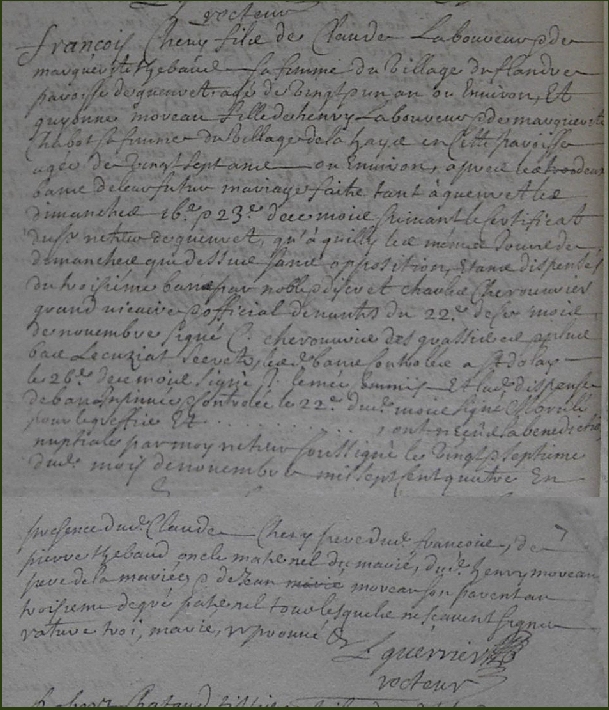 recteur
françois Chery fils de Claude Laboureur & de
marguerite Thebaud sa femme du village de flandre
paroisse de quenvet age de vingt un an ou Environ, Et
guyonne moreau fille de henry Laboureur & de marguerite
Chabot sa femme du village de la haye en Cette paroisse
agée de vingt sept ans ou Environ, apres les deux
bans de leur futur mariage faits tant à quenvet les
dimanches 16e & 23e de ce mois suivant le certificat
dudit recteur de quenvet, qu'à quilly les mêmes Jours de
dimanches que dessus sans opposition, Et ans dispenses
du troisième bans par noble & discret charles Cherouvrier
grand vicaire & official de nantes du 22e de ce mois
de novembre signé C. cherouvrier des grassieres et plus
bas Lecuziat secret. lesd. bans Controllés a St dolay
le 26e de ce mois signé Lemee commis Et lad. dispense
de bans controlée le 22e dud. mois signé
pour le greffier Et . . . . . . ont reçu la benediction
nuptiale par moy recteur soussigné le vingt septième
dud. mois de novembre mil sept cent quatre En
presence dud. Claude Chery pere dud. françois, de
pierre Thebaud oncle maternel du marié, dud. henry moreau
pere de la mariée, & de Jean marie moreau son parent au
troisieme degré paternel tous lesquels ne sçavent signer
rature troi, marie, approuvé
L guerrier
recteur